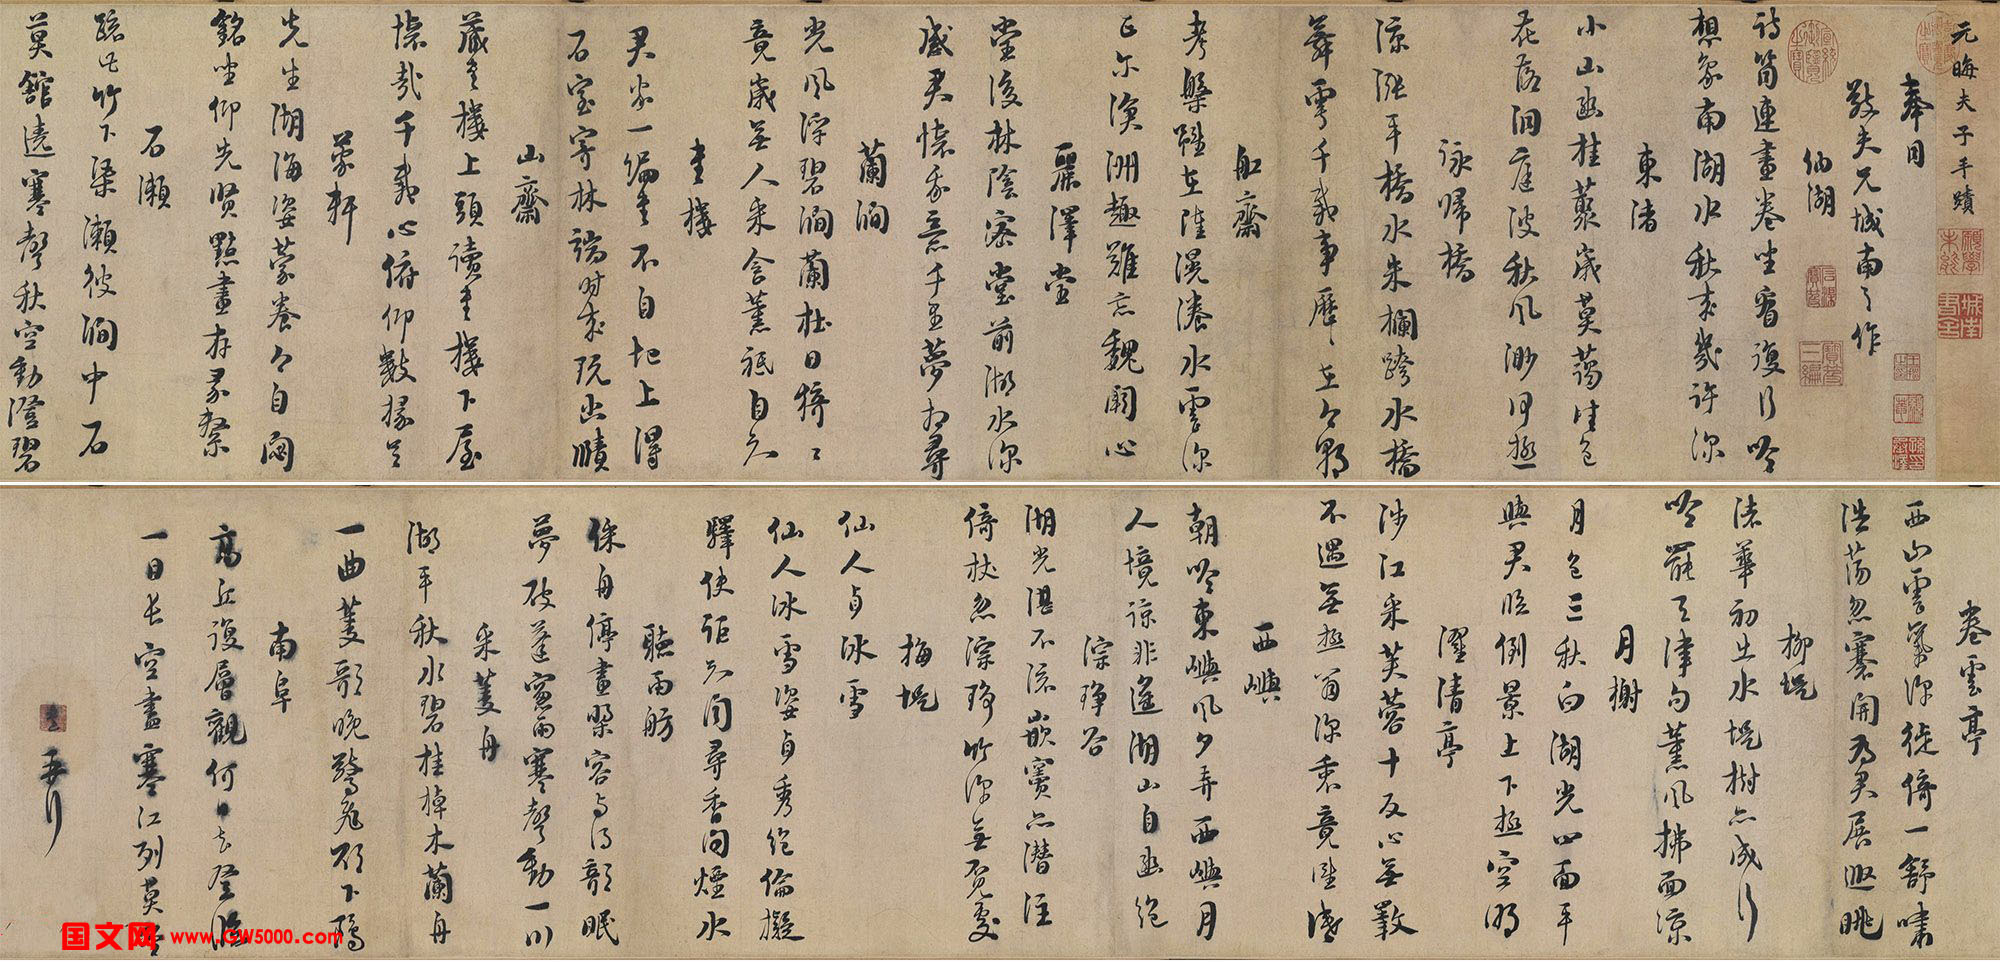 元晦夫子手蹟
奉同
敬夫兄城南之作
納湖
詩筒連畫卷坐看復行吟
想象南湖水秋來幾許深
東渚
小山幽桂叢歲莫藹佳色
花落洞庭波秋風渺何極
詠歸橋
綠漲平橋水朱欄跨水橋
舞雩千載事歷歷在今朝
船齋
考槃雖在陸滉瀁水雲深
正爾滄洲趣難忘魏闕心
麗澤堂
堂後林陰密堂前湖水深
感君懷我意千里夢相尋
蘭澗
光風浮碧澗蘭杜日猗猗
竟歲無人采含薰祇自知
書樓
君家一編書不自圯上得
石室寄林端時來玩幽賾
山齋
藏書樓上頭讀書樓下屋
懷哉千載心俯仰數椽足
蒙軒
先生湖海姿蒙養今自閟
銘坐仰先賢點畫存彖繫
石瀨
疏此竹下渠瀨彼澗中石
莫館遶寒聲秋空動澄碧
卷雲亭
西山雲氣深徙倚一舒嘯
浩蕩忽褰開為君展遐眺
柳堤
渚華初出水堤樹亦成行
吟罷天津句薰風拂面涼
月榭
月色三秋白湖光四面平
與君臨倒景上下極空明
濯清亭
涉江采芙蓉十反心無斁
不遇無極翁深衷竟誰識
西嶼
朝吟東嶼風夕弄西嶼月
人境諒非遙湖山自幽絕
淙琤谷
湖光湛不流嵌竇亦潛注
倚杖忽淙琤竹深無覓處
梅堤
仙人貞冰雪
仙人冰雪姿貞秀絕倫擬
驛使詎知聞尋香問煙水
聽雨舫
綵舟停畫槳容與得欹眠
夢破蓬窗雨寒聲動一川
采菱舟
湖平秋水碧桂棹木蘭舟
一曲菱歌晚驚飛欲下鷗
南阜
高丘復層觀何日去登臨
一目長空盡寒江列莫岑
熹再拜
国文网 www.GW5000.com